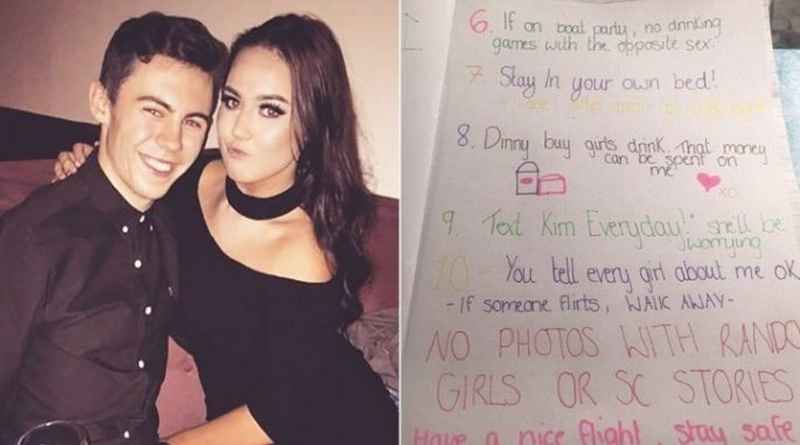 6. If on boat party, no drinking
games with the opposite sex
7. Stay in your own bed!
8. Dinny buy girls drink. That money
can be spent on
me
xo
9. Text Kim Everyday! she'll be
worrying
10 You tell every girl about me OK
- If someone flirts, WALK AWAY -
NO PHOTOS WITH RANDO
GIRLS OR SC STORIES
Have a nice flight, stay safe